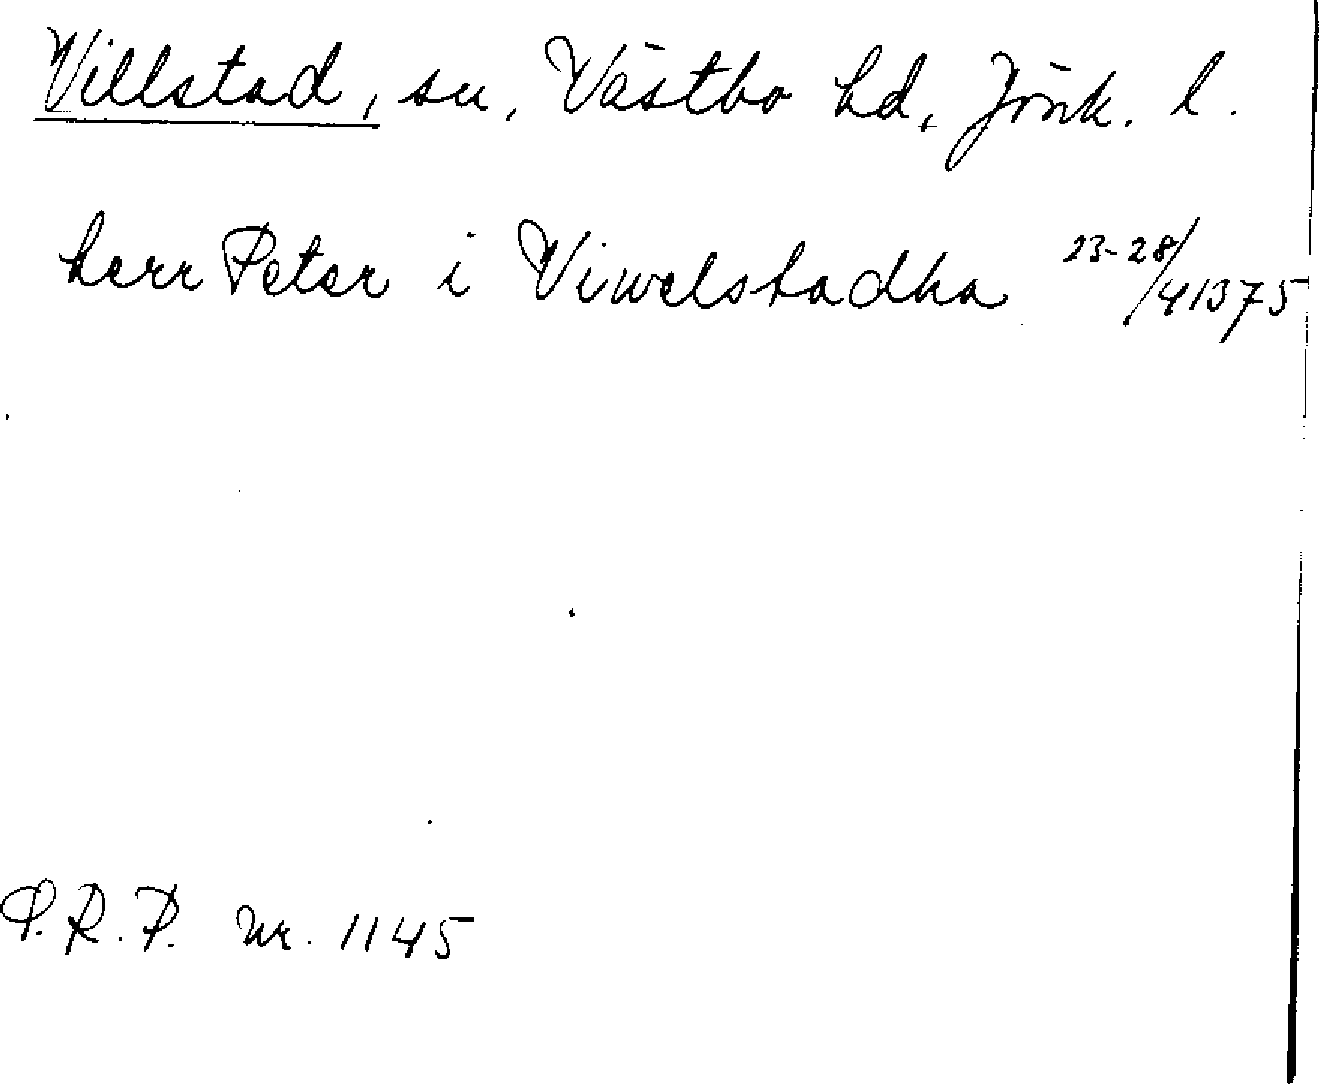 Villstad, sn, Västbo hd, Jönk. l.
herr Peter i Viwelstadha 23-28/4 1375
P.R.P. nr. 1145